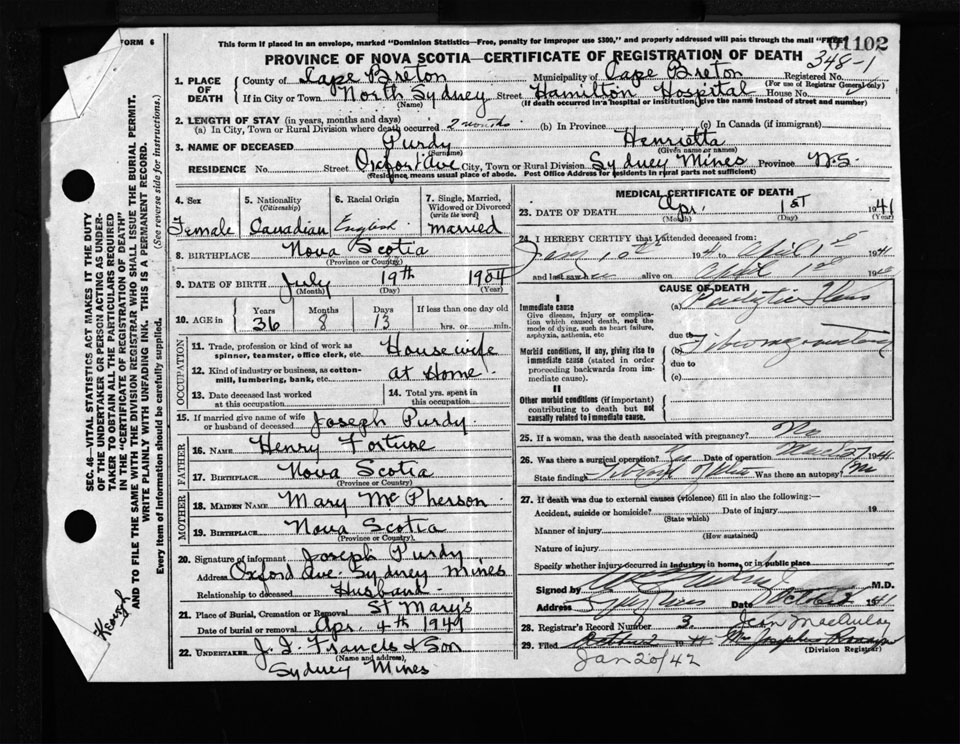 FORM 6
This form if placed in an envelope, marked "Dominion Statistics—Free, penalty for improper use $300," and properly addressed will pass through the mail "FREE"
01102
PROVINCE OF NOVA SCOTIA—CERTIFICATE OF REGISTRATION OF DEATH
348-1
1. PLACE OF DEATH
County of Cape Breton Municipality of Cape Breton Registered No.
(For use of Registrar General only)
If in City or Town North Sydney Street Hamilton Hospital House No.
(Name) (If death occurred in a hospital or institution, give the name instead of street and number)
2. LENGTH OF STAY (in years, months and days)
(a) In City, Town or Rural Division where death occurred 2 months (b) In Province (c) In Canada (if immigrant)
3. NAME OF DECEASED Purdy Henrietta
(Surname) (Given name or names)
RESIDENCE No. Street Oxford Ave City, Town or Rural Division Sydney Mines Province N.S.
(Residence means usual place of abode. Post Office Address for residents in rural parts not sufficient)
4. Sex Female
5. Nationality (Citizenship) Canadian
6. Racial Origin English
7. Single, Married, Widowed or Divorced (write the word) married
8. BIRTHPLACE Nova Scotia
(Province or Country)
9. DATE OF BIRTH July 19th 1904
(Month) (Day) (Year)
10. AGE in Years Months Days If less than one day old
36 8 13 hrs. or min.
OCCUPATION
11. Trade, profession or kind of work as spinner, teamster, office clerk, etc. Housewife
12. Kind of industry or business, as cotton-mill, lumbering, bank, etc. at Home
13. Date deceased last worked at this occupation
14. Total yrs. spent in this occupation
15. If married give name of wife or husband of deceased Joseph Purdy
FATHER
16. NAME Henry Fortune
17. BIRTHPLACE Nova Scotia
(Province or Country)
MOTHER
18. MAIDEN NAME Mary McPherson
19. BIRTHPLACE Nova Scotia
(Province or Country)
20. Signature of informant Joseph Purdy
Address Oxford Ave. Sydney Mines
Relationship to deceased Husband
21. Place of Burial, Cremation or Removal St Mary's
Date of burial or removal Apr. 4th 1941
22. UNDERTAKER J. J. Francis & Son
(Name and address)
Sydney Mines
MEDICAL CERTIFICATE OF DEATH
23. DATE OF DEATH Apr. 1st 1941
(Month) (Day) (Year)
24. I HEREBY CERTIFY that I attended deceased from:
194 to April 1st 1941
and last saw her alive on April 1st 19
CAUSE OF DEATH
I
Immediate cause
Give disease, injury or complication which caused death, not the mode of dying, such as heart failure, asphyxia, asthenia, etc.
(a) Paralytic Ileus
due to
Morbid conditions, if any, giving rise to immediate cause (stated in order proceeding backwards from immediate cause).
(b)
due to
(c)
II
Other morbid conditions (if important) contributing to death but not causally related to immediate cause.
25. If a woman, was the death associated with pregnancy? No
26. Was there a surgical operation? Yes Date of operation March 27 1941
State findings Was there an autopsy? No
27. If death was due to external causes (violence) fill in also the following:—
Accident, suicide or homicide? Date of injury 19
(State which)
Manner of injury
(How sustained)
Nature of injury
Specify whether injury occurred in industry, in home, or in public place
Signed by M.D.
Address Date
28. Registrar's Record Number 3. Jean MacAulay
29. Filed
(Division Registrar)
Jan 20/42
SEC. 46—VITAL STATISTICS ACT MAKES IT THE DUTY
OF THE UNDERTAKER OR PERSON ACTING AS UNDERTAKER TO OBTAIN ALL THE PARTICULARS REQUIRED
IN THE "CERTIFICATE OF REGISTRATION OF DEATH"
AND TO FILE THE SAME WITH THE DIVISION REGISTRAR WHO SHALL ISSUE THE BURIAL PERMIT.
WRITE PLAINLY WITH UNFADING INK. THIS IS A PERMANENT RECORD.
Every item of information should be carefully supplied. (See reverse side for instructions.)